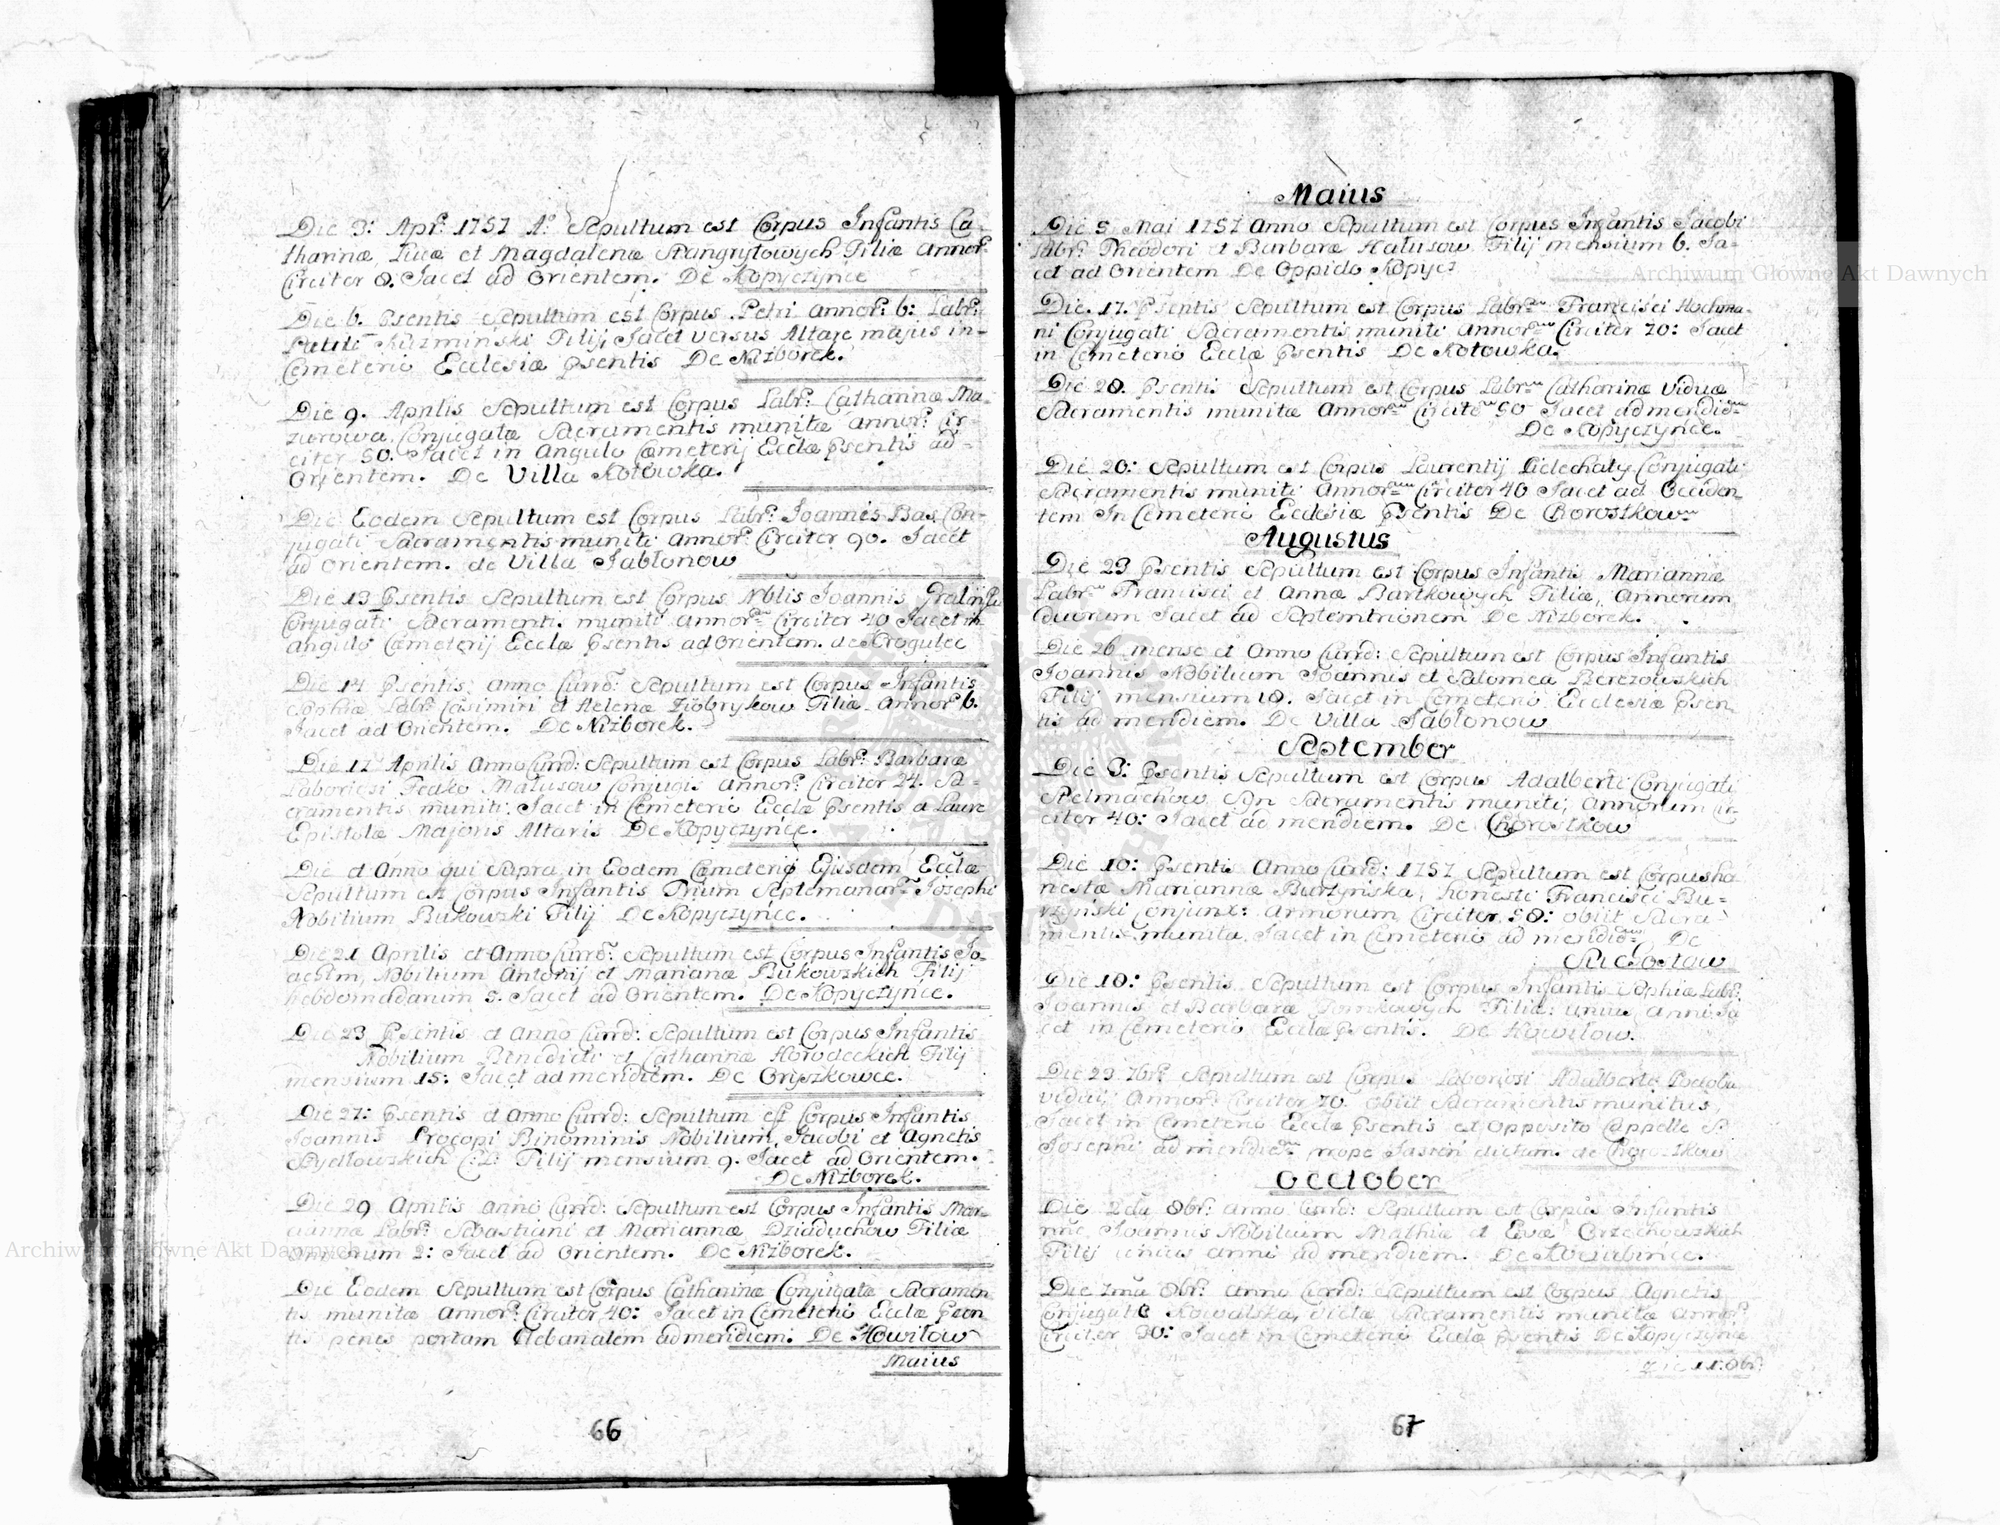 Die 3: Apr: 1757 Aº Sepultum est Corpus Infantis Ca-
tharinæ, Lucæ et Magdalenæ Filiæ Annor:
Circiter 8. Jacet ad Orientem. De Kopyczynce
Die 6. Psentis Sepultum est Corpus Petri annor: 6: Labr:
Kuzminski Filij, Jacet versus Altare majus in-
Cemeterio Ecclesiæ Psentis De Niżborek.
Die 9. Aprilis Sepultum est Corpus Labr: Catharinæ Ma-
zurowa, Conjugatæ Sacramentis munitæ annor: Cir-
citer 50. Jacet in Angulo Cæmeterij Ecclæ Psentis ad-
Orientem. De Villa Kotowka.
Die Eodem Sepultum est Corpus Labr: Joannis Bas Con-
jugati Sacramentis muniti annor: Circiter 90. Jacet
ad Orientem. de Villa Jabłonow
Die 13 Psentis Sepultum est Corpus Nblis Joannis
Conjugati Sacramenti. muniti annor: Circiter 40 Jacet in
angulo Cæmeterij Ecclæ Psentis ad Orientem. de Krogulec
Die 14 Psentis, anno Currd: Sepultum est Corpus Infantis
Sophiæ Labr: Casimiri et Helenæ Ziobrykow Filiæ Annor: 6.
Jacet ad Orientem. De Niżborek.
Die Aprilis Anno Currd: Sepultum est Corpus Labr: Barbaræ
Laboriosi Fedko Matusow Conjugis annor: Circiter 24. Sa-
cramentis muniti, Jacet in Cemeterio Ecclæ Psentis a
Epistolæ Majoris Altaris De Kopyczynce.
Die et Anno qui Supra, in Eodem Cæmeterio Ejusdem Ecclæ
Sepultum est Corpus Infantis Trium Septemanar: Josephi
Nobilium Bukowski Filij De Kopyczynce.
Die 21 Aprilis et Anno Currd: Sepultum est Corpus Infantis Jo-
achim, Nobilium Antonij et Marianæ Bukowskich Filij
hebdomadarum 5. Jacet ad Orientem. De Kopyczynce.
Die 23 Psentis et Anno Currd: Sepultum est Corpus Infantis
Nobilium Benedicti et Catharinæ Horodeckich Filij
mensium 15: Jacet ad meridiem. De Oryszkowce.
Die 27: Psentis et Anno Currd: Sepultum est Corpus Infantis
Joannis Procopi Binominis Nobilium, Jacobi et Agnetis
Filij mensium 9. Jacet ad Orientem.
De Niżborek.
Die 29 Aprilis anno Currd: Sepultum est Corpus Infantis Mar-
iannæ Labr: Sebastiani et Mariannæ Dziaduchow Filiæ
annorum 2: Jacet ad Orientem. De Niżborek.
Die Eodem Sepultum est Corpus Catharinæ Conjugatæ Sacramen
tis munitæ Annor: Circiter 40: Jacet in Cemeterio Ecclæ Psen
tis penes portam ad meridiem. De Howiłow
Maius
66
Maius
Die 5 Mai 1757 Anno Sepultum est Corpus Infantis Jacobi
Labr: Theodori et Barbaræ Hałusow Filij mensium 6. Ja-
cet ad Orientem De Oppido Kopycz
Die. 17. Psentis Sepultum est Corpus Labr: Francisci Hochma-
ni Conjugati Sacramentis muniti Annor: Circiter 70: Jacet
in Cemeterio Ecclæ Psentis De Kotowka.
Die 20. Psenti Sepultum est Corpus Labr: Catharinæ Viduæ
Sacramentis munitæ Annor: Circiter 50 Jacet ad meridiem
De Kopyczynce.
Die 20: Sepultum est Corpus Laurentij Conjugati
Sacramentis muniti Annor: Circiter 40 Jacet ad Occiden
tem In Cemeterio Ecclesiæ Psentis De Chorostkow
Augustus
Die 23 Psentis Sepultum est Corpus Infantis Mariannæ
Labr: Francisci et Annæ Bartkowych Filiæ, Annorum
duorum Jacet ad Septemtrionem De Niżborek.
Die 26 mense et Anno Currd: Sepultum est Corpus Infantis
Joannis Nobilium Joannis et Salomea Berezowskich
Filij mensium 18. Jacet in Cemeterio Ecclesiæ Psen
tis ad meridiem. De Villa Jabłonow
September
Die 3: Psentis Sepultum est Corpus Adalberti Conjugati
Stelmachow Sacramentis muniti, Annorum Cir-
citer 40: Jacet ad meridiem. De Chorostkow
Die 10: Psentis Anno Currd: 1757 Sepultum est Corpus ho
nestæ Mariannæ Burzynska, honesti Francisci Bu-
rzynski Conjunx: annorum Circiter 50: obiit Sacra-
mentis munita, Jacet in Cemeterio ad meridiem, De
Suchostaw
Die 18: Psentis Sepultum est Corpus Infantis Sophiæ Labr:
Joannis et Barbaræ Filiæ: unius anni Ja
cet in Cemeterio Ecclæ Psentis. De Howiłow.
Die 23 7br: Sepultum est Corpus Laboriosi Adalberti
vidui, Annor: Circiter 70. obiit Sacramentis munitus,
Jacet in Cemeterio Ecclæ Psentis ex Opposito Cappellæ S.
Josephi ad meridiem prope dictum. de Chorostkow
October
Die 2da 8br: anno Currd: Sepultum est Corpus Infantis
Joannis Nobilium Mathiæ et Evæ Orzechowskich
Filij unius anni ad meridiem. De
Die 7ma 8br: anno Currd: Sepultum est Corpus Agnetis
Conjugatæ Kowalska, dictæ Sacramentis munitæ annor:
Circiter 30: Jacet in Cemeterio Ecclæ Psentis De Kopyczynce
Die 11: 8br:
67
Archiwum Główne Akt Dawnych
Archiwum Główne Akt Dawnych